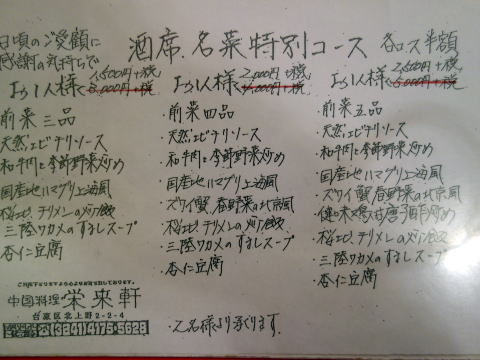 日頃のご愛顧に
感謝の気持ちで
酒席.名菜特別コース 各コース半額
お1人様 1,500円+税
3,000円+税
前菜三品
天然エビチリソース
和牛肉と季節野菜炒め
国産地ハマグリ上海風
桜エビ、チリメンの炒飯
三陸ワカメのすましスープ
杏仁豆腐
お1人様 2,000円+税
4,000円+税
・前菜四品
・天然エビチリソース
・和牛肉と季節野菜炒め
・国産地ハマグリ上海風
・ズワイ蟹、春野菜の北京風
・桜エビ、チリメンの炒飯
・三陸ワカメのすましスープ
・杏仁豆腐
お1人様 2,500円+税
5,000円+税
・前菜五品
・天然エビチリソース
・和牛肉と季節野菜炒め
・国産地ハマグリ上海風
・ズワイ蟹春野菜の北京風
・桜エビ、チリメンの炒飯
・三陸ワカメのすましスープ
・杏仁豆腐
中国料理 栄来軒
台東区北上野2-2-4
(3241)4175・5628
・2名様より承ります.